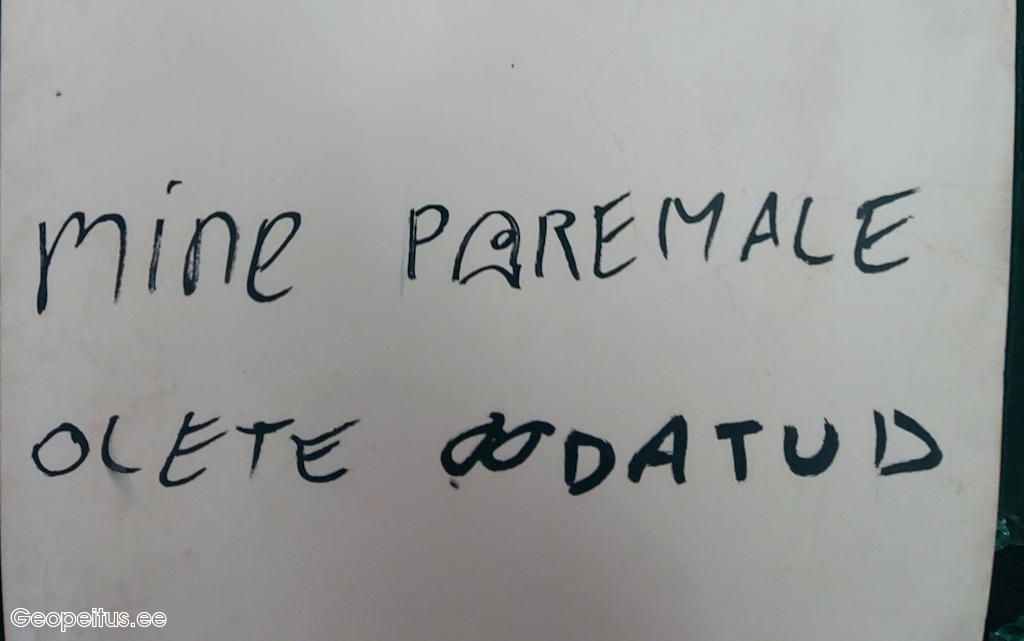 mine PAREMALE
OLETE OODATUD
Geopeitus.ee